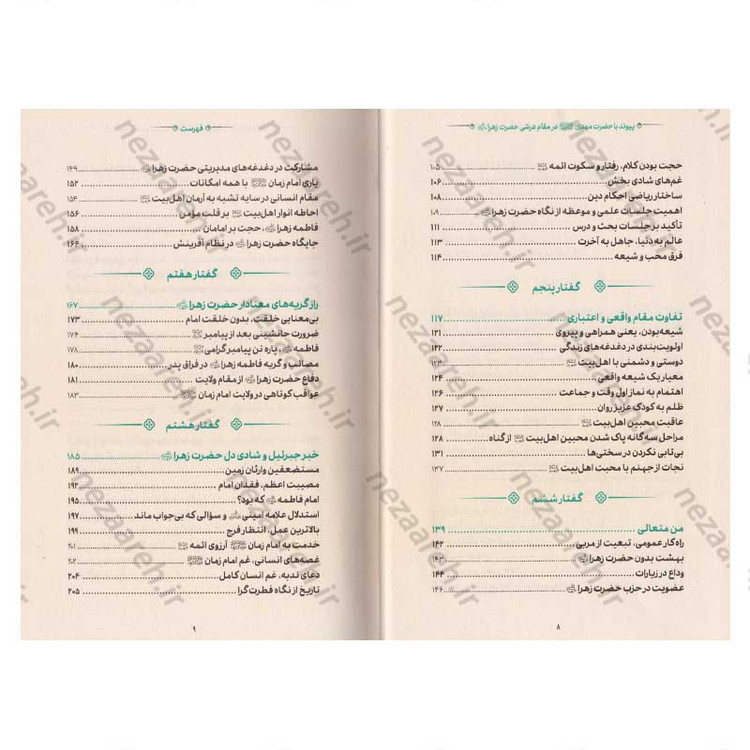 پیوند با حضرت مهدی در مقام عرشی حضرت زهرا
حجت بودن کلام، رفتار و سکوت ائمه ۱۰۵
غم‌های شادی بخش ۱۰۶
ساختار ریاضی احکام دین ۱۰۸
اهمیت جلسات علمی و موعظه از نگاه حضرت زهرا ۱۰۹
تأکید بر جلسات بحث و درس ۱۱۱
عالم به دنیا، جاهل به آخرت ۱۱۳
فرق محب و شیعه ۱۱۴
گفتار پنجم
تفاوت مقام واقعی و اعتباری ۱۱۷
شیعه‌بودن، یعنی همراهی و پیروی ۱۲۱
اولویت‌بندی در دغدغه‌های زندگی ۱۲۲
دوستی و دشمنی با اهل‌بیت ۱۲۳
معیار یک شیعه واقعی ۱۲۴
اهتمام به نماز اول وقت و جماعت ۱۲۶
ظلم به کودک عزیز روان ۱۲۷
عاقبت محبین اهل‌بیت ۱۲۸
مراحل سه‌گانه پاک شدن محبین اهل‌بیت از گناه ۱۲۸
بی‌تابی نکردن در سختی‌ها ۱۳۱
نجات از جهنم با محبت اهل‌بیت ۱۳۷
گفتار ششم
من متعالی ۱۳۹
راه‌کار عمومی، تبعیت از مربی ۱۴۲
بهشت بدون حضرت زهرا ۱۴۳
وداع در زیارات ۱۴۴
عضویت در حزب حضرت زهرا ۱۴۶
۸
فهرست
مشارکت در دغدغه‌های مدیریتی حضرت زهرا ۱۴۹
یاری امام زمان با همه امکانات ۱۵۲
مقام انسانی در سایه تشبه به آرمان اهل‌بیت ۱۵۴
احاطه انوار اهل‌بیت بر قلب مؤمن ۱۵۶
فاطمه زهرا، حجت بر امامان ۱۵۸
جایگاه حضرت زهرا در نظام آفرینش ۱۶۴
گفتار هفتم
راز گریه‌های معنادار حضرت زهرا ۱۶۷
بی‌معنایی خلقت، بدون خلقت امام ۱۷۳
ضرورت جانشینی بعد از پیامبر ۱۷۴
فاطمه، پاره تن پیامبر گرامی ۱۷۸
مصائب و گریه فاطمه زهرا در فراق پدر ۱۸۰
دفاع حضرت زهرا از مقام ولایت ۱۸۱
عواقب کوتاهی در ولایت امام زمان ۱۸۳
گفتار هشتم
خبر جبرئیل و شادی دل حضرت زهرا ۱۸۵
مستضعفین وارثان زمین ۱۸۹
مصیبت اعظم، فقدان امام ۱۹۲
امام فاطمه که بود؟ ۱۹۵
استدلال علامه امینی و سؤالی که بی‌جواب ماند ۱۹۷
بالاترین عمل، انتظار فرج ۱۹۹
خدمت به امام زمان آرزوی ائمه ۲۰۱
غصه‌های انسانی، غم امام زمان ۲۰۲
دعای ندبه، غم انسان کامل ۲۰۴
تاریخ از نگاه فطرت‌گرا ۲۰۵
۹
nezaareh.ir